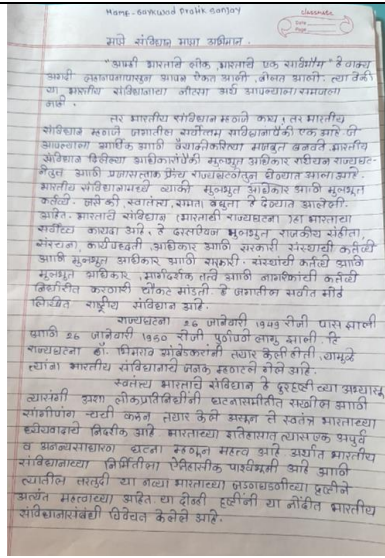 Name - Gaikwad Pratik Sanjay
classmate
Date
Page
माझे संविधान माझा अभिमान.
"आम्ही भारताचे लोक, भारताचे एक सार्वभौम" हे वाक्य
अगदी लहानपणापासून आपण ऐकत आलो, बोलत आलो. त्या वेळी
या भारतीय संविधानाचा नीटसा अर्थ आपल्याला समजला
नाही.
तर भारतीय संविधान म्हणजे काय, तर भारतीय
संविधान म्हणजे जगातील सर्वोत्तम संविधानापैकी एक आहे जे
आपल्याला आर्थिक आणि वैयक्तिकरित्या मजबुत बनवते भारतीय
संविधान दिलेल्या अधिकारांपैकी मुलभूत अधिकार रशियन राज्यघट-
नेतून आणि प्रजासत्ताक फ्रेंच राज्यघटनेतून घेण्यात आला आहे.
भारतीय संविधानामध्ये व्यक्ती मुलभूत अधिकार आणि मुलभूत
कर्तव्ये. जसे की स्वातंत्र्य, समता, बंधुता हे देण्यात आलेली
आहेत. भारताचे संविधान (भारताची राज्यघटना) हा भारताचा
सर्वोच्च कायदा आहे. हे दस्तऐवज मुलभूत राजकीय संहिता,
संरचना, कार्यपध्दती, अधिकार आणि सरकारी संस्थांची कर्तव्ये
आणि मुलभूत अधिकार आणि सरकारी. संस्थांची कर्तव्ये आणि
मुलभूत अधिकार, मार्गदर्शक तत्वे आणि नागरिकांची कर्तव्ये
निर्धारीत करणारी चौकट मांडती हे जगातील सर्वात मोठे
लिखित राष्ट्रीय संविधान आहे.
राज्यघटना 26 जानेवारी 1949 रोजी पास झाली
आणि 26 जानेवारी 1950 रोजी पुर्णपणे लागु झाली. हि
राज्यघटना डॉ. भिमराव आंबेडकरांनी तयार केली होती, यामुळे
त्यांना भारतीय संविधानाचे जनक म्हटले गेले आहे.
स्वतंत्र भारताचे संविधान हे दुरदृष्टीच्या अभ्यासू
त्यासंगी अशा लोकप्रतिनिधींनी घटनासमितीत सखोल आणि
सांगोपांग चर्चा करून तयार केले असून ते स्वतंत्र भारताच्या
ध्येयवादाचे निदर्शक आहे भारताच्या इतिहासात त्यास एक अपुर्व
व अनन्यसाधारण घटना म्हणून महत्व आहे. अर्थात भारतीय
संविधानाच्या निर्मितीला ऐतिहासीक पार्श्वभूमी आहे आणि
त्यातील तरतुदी या नव्या भारताच्या जडणघडणीच्या दृष्टीने
अत्यंत महत्वाच्या आहेत या दोन्ही दृष्टींनी या नोंदीत भारतीय
संविधानासंबंधी विवेचन केलेले आहे.